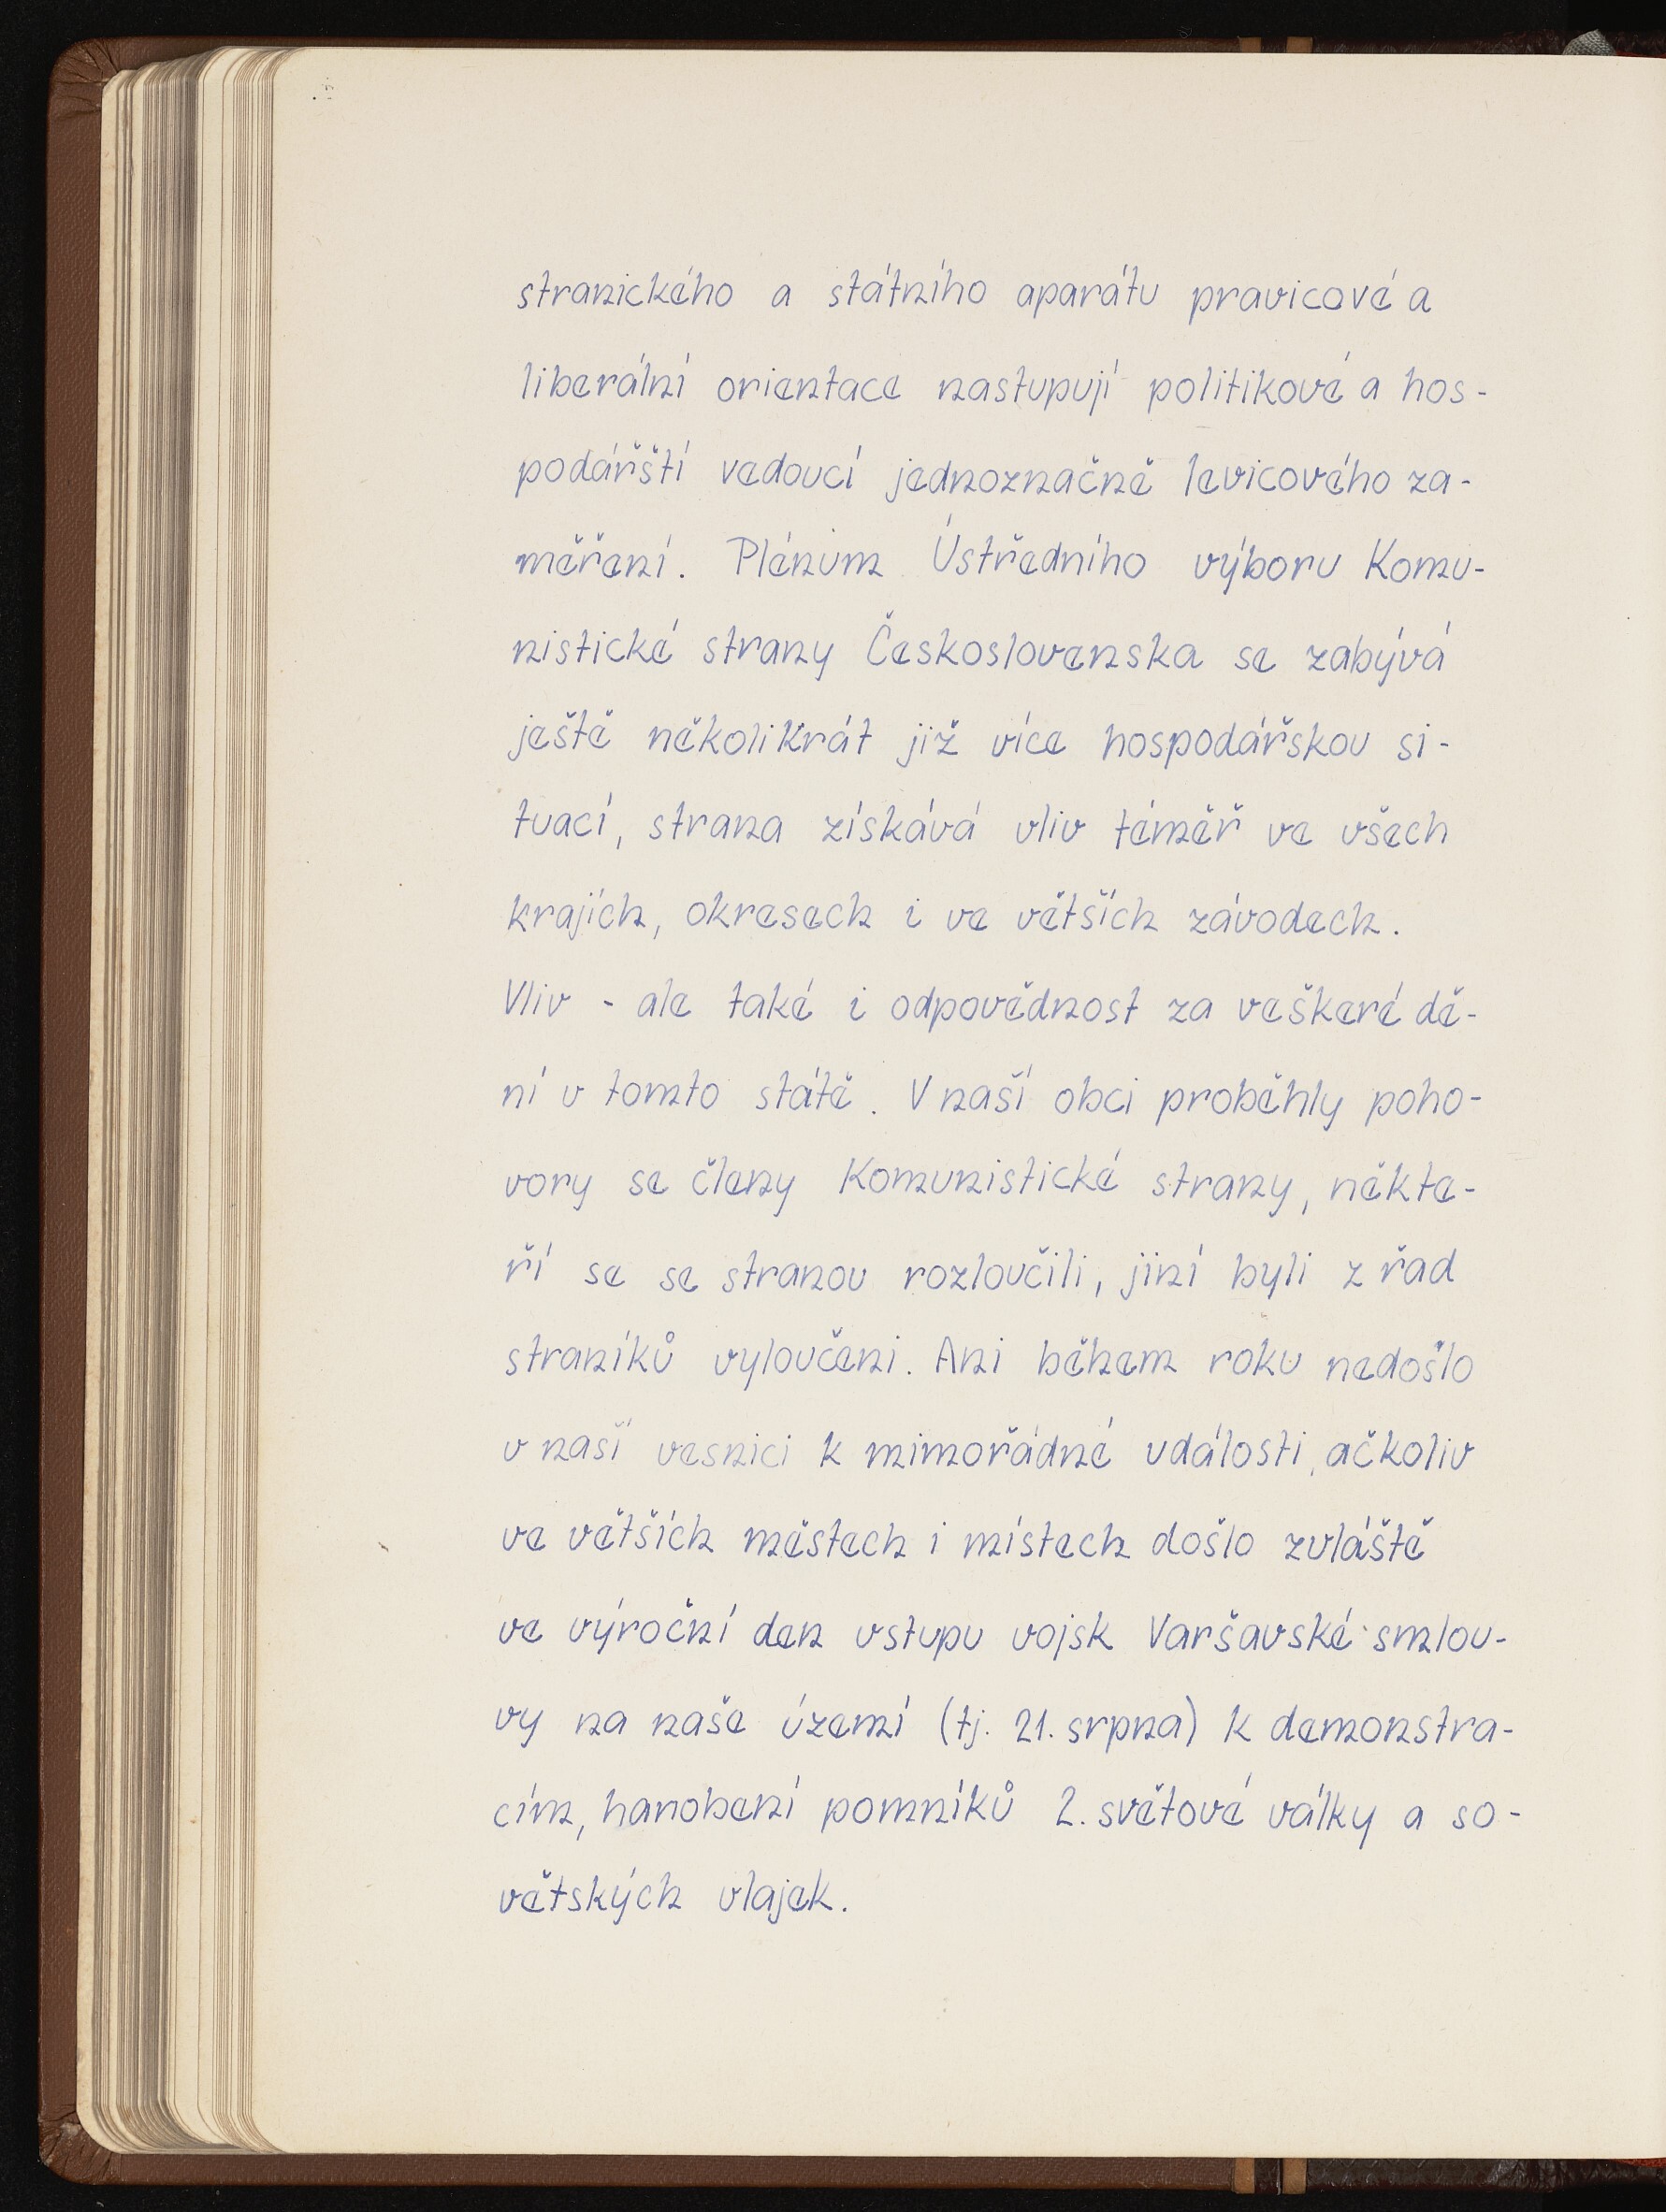 stranického a státního aparátu pravicové a
liberální orientace nastupují politikové a hos-
podářští vedoucí jednoznačně levicového za-
měření. Plénum Ústředního výboru Komu-
nistické strany Československa se zabývá
ještě několikrát již více hospodářskou si-
tuací, strana získává vliv téměř ve všech
krajích, okresech i ve větších závodech.
Vliv - ale také i odpovědnost za veškeré dě-
ní v tomto státě. V naší obci proběhly poho-
vory se členy Komunistické strany, někte-
ří se se stranou rozloučili, jiní byli z řad
straníků vyloučeni. Ani během roku nedošlo
v naší vesnici k mimořádné události, ačkoliv
ve větších městech i místech došlo zvláště
ve výroční den vstupu vojsk Varšavské smlou-
vy na naše území (tj. 21. srpna) k demonstra-
cím, hanobení pomníků 2. světové války a so-
větských vlajek.